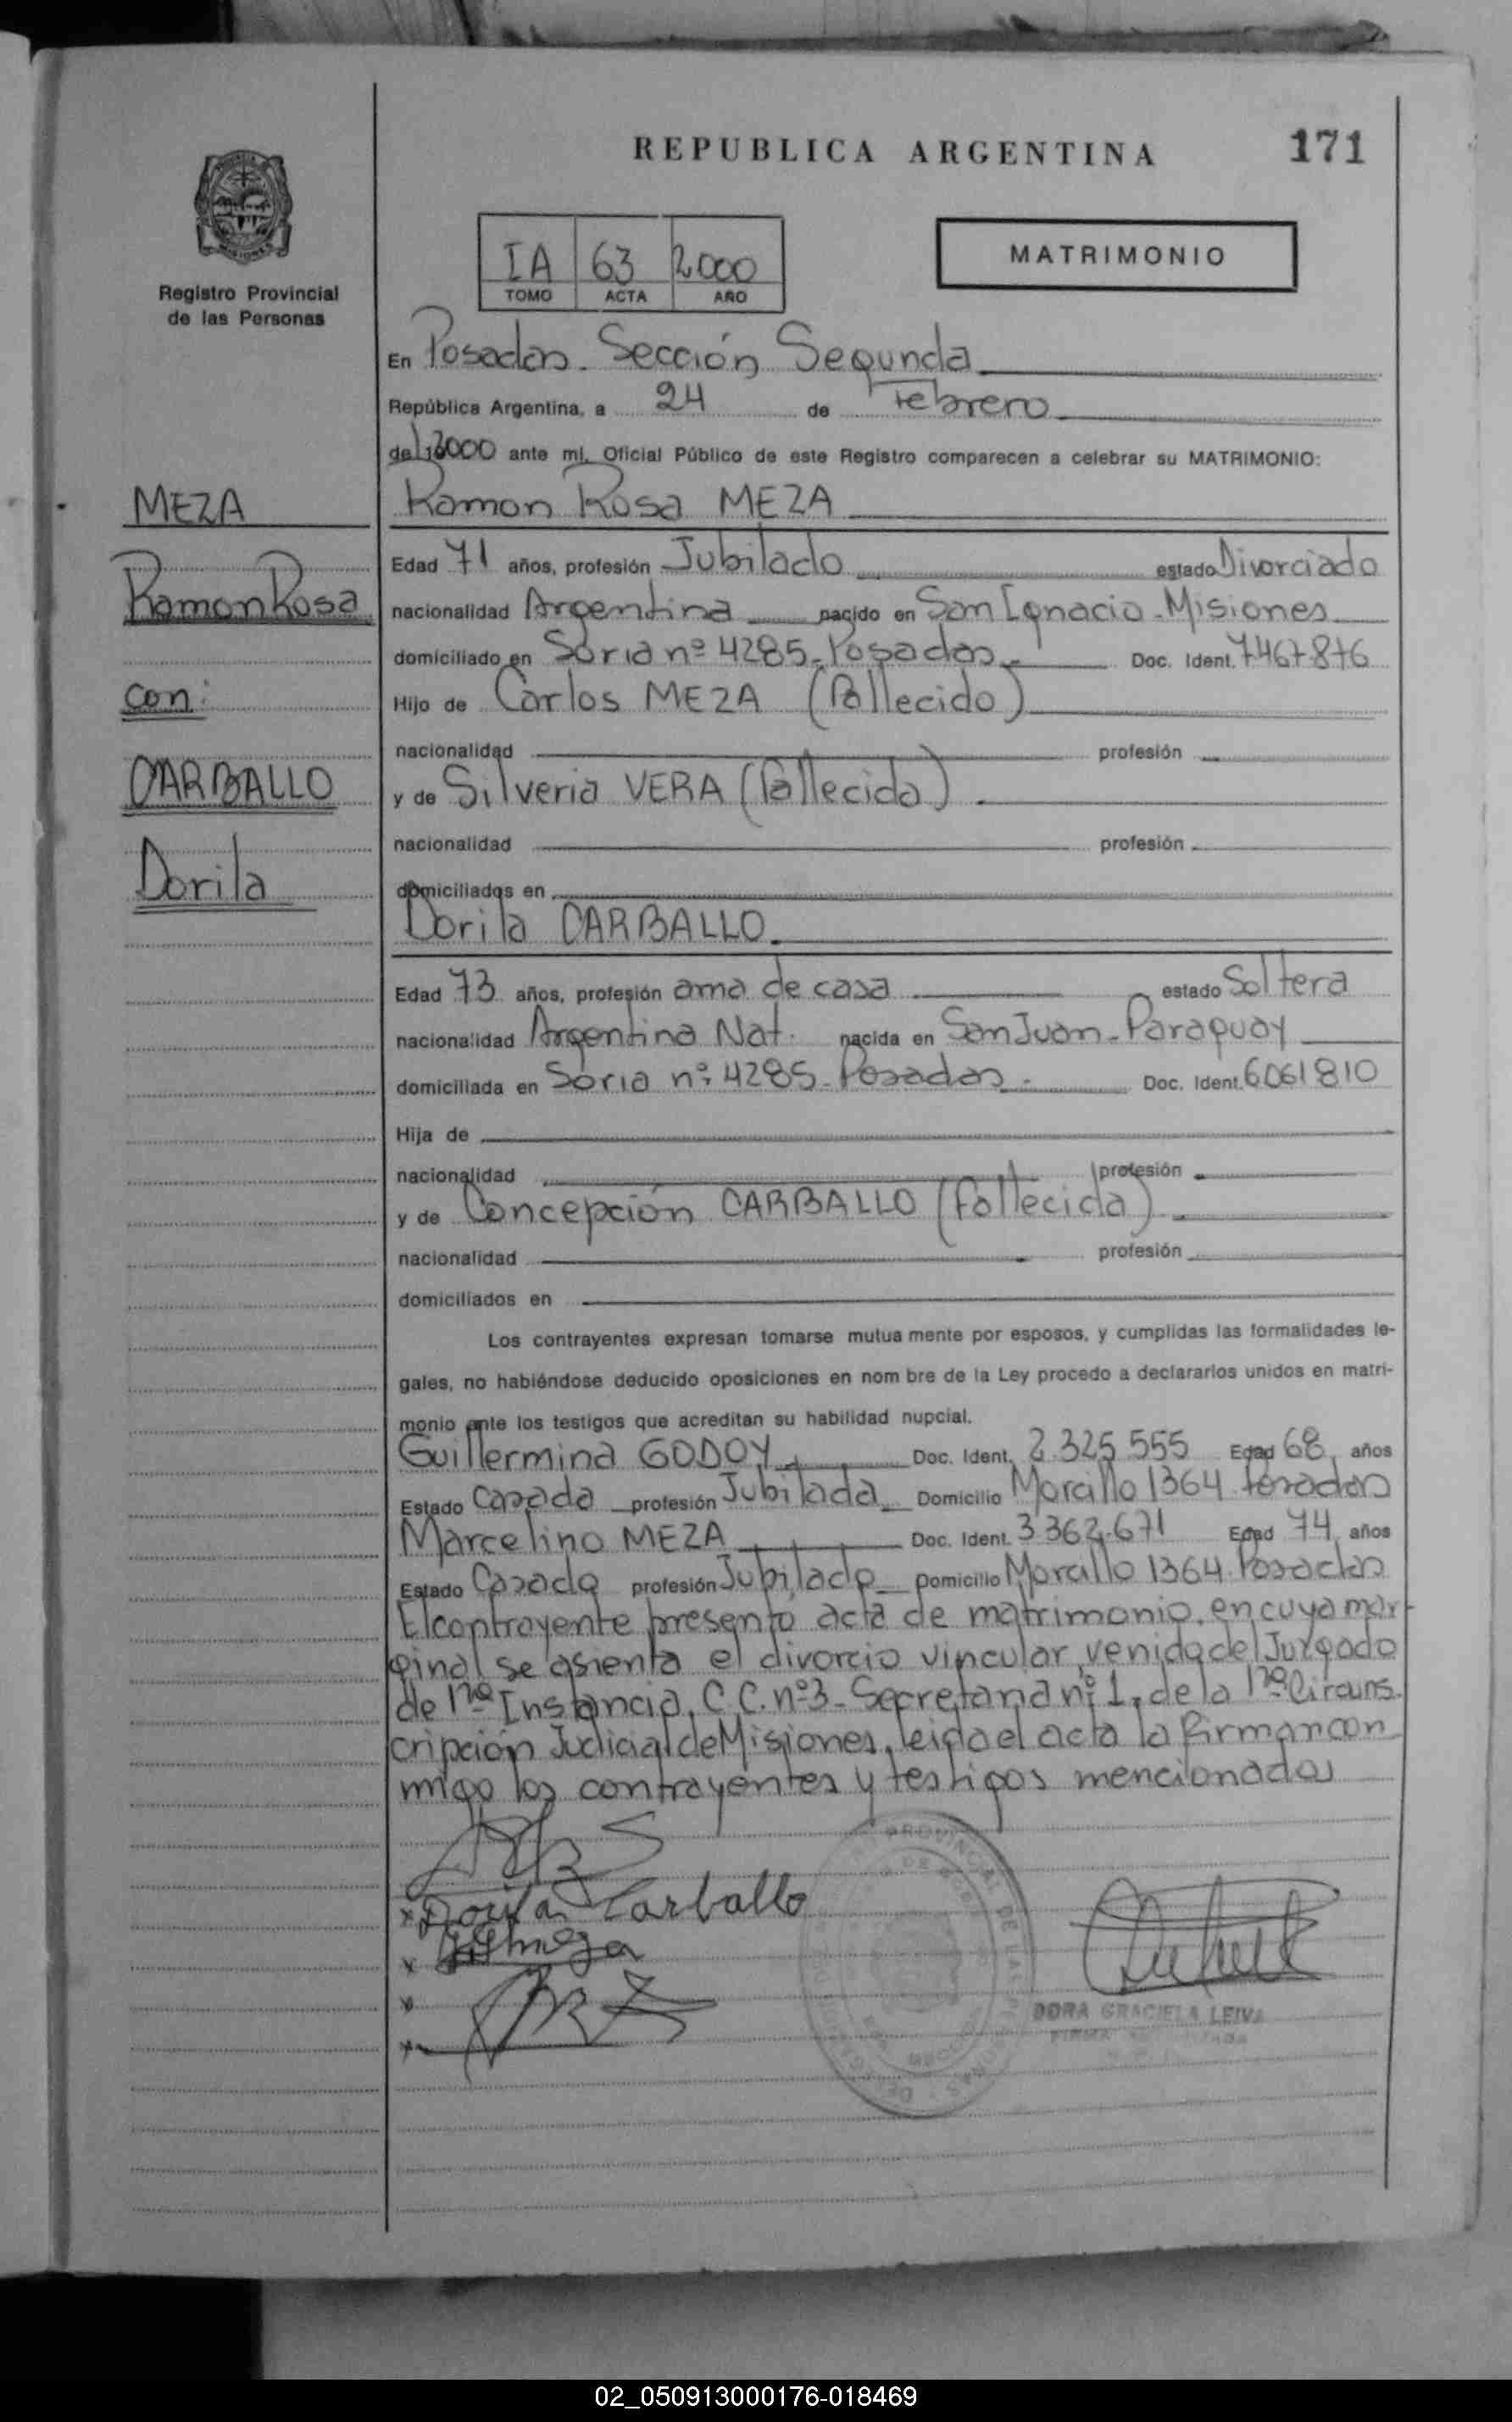 REPUBLICA ARGENTINA 171
Registro Provincial
de las Personas
IA 63 2000
TOMO ACTA AÑO
MATRIMONIO
En Posadas. Sección Segunda
República Argentina, a 24 de Febrero
del 2000 ante mi, Oficial Público de este Registro comparecen a celebrar su MATRIMONIO:
MEZA
Ramon Rosa
con:
CARBALLO
Dorila
Ramon Rosa MEZA
Edad 71 años, profesión Jubilado estado Divorciado
nacionalidad Argentina nacido en San Ignacio - Misiones
domiciliado en Soria nº 4285 - Posadas. Doc. Ident. 7467876
Hijo de Carlos MEZA (Fallecido)
nacionalidad profesión
y de Silveria VERA (Fallecida)
nacionalidad profesión
domiciliados en
Dorila CARBALLO
Edad 73 años, profesión ama de casa estado Soltera
nacionalidad Argentina Nat. nacida en San Juan - Paraguay
domiciliada en Soria nº 4285 - Posadas. Doc. Ident. 6061810
Hija de
nacionalidad profesión
y de Concepción CARBALLO (Fallecida)
nacionalidad profesión
domiciliados en
Los contrayentes expresan tomarse mutua mente por esposos, y cumplidas las formalidades le-
gales, no habiéndose deducido oposiciones en nom bre de la Ley procedo a declararlos unidos en matri-
monio ante los testigos que acreditan su habilidad nupcial.
Guillermina GODOY Doc. Ident. 2.325.555 Edad 68 años
Estado Casada profesión Jubilada Domicilio Morcillo 1364 Posadas
Marcelino MEZA Doc. Ident. 3362.671 Edad 74 años
Estado Casado profesión Jubilado Domicilio Morcillo 1364. Posadas
El contrayente presento acta de matrimonio, en cuya mar-
ginal se asienta el divorcio vincular, venida del Juzgado
de 1ra Instancia, C.C. nº3 - Secretaria nº 1, de la 1ra Circuns.
cripción Judicial de Misiones, leida el acta la firman con
migo los contrayentes y testigos mencionados
Dorila Carballo
DORA GRACIELA LEIVA
02_050913000176-018469